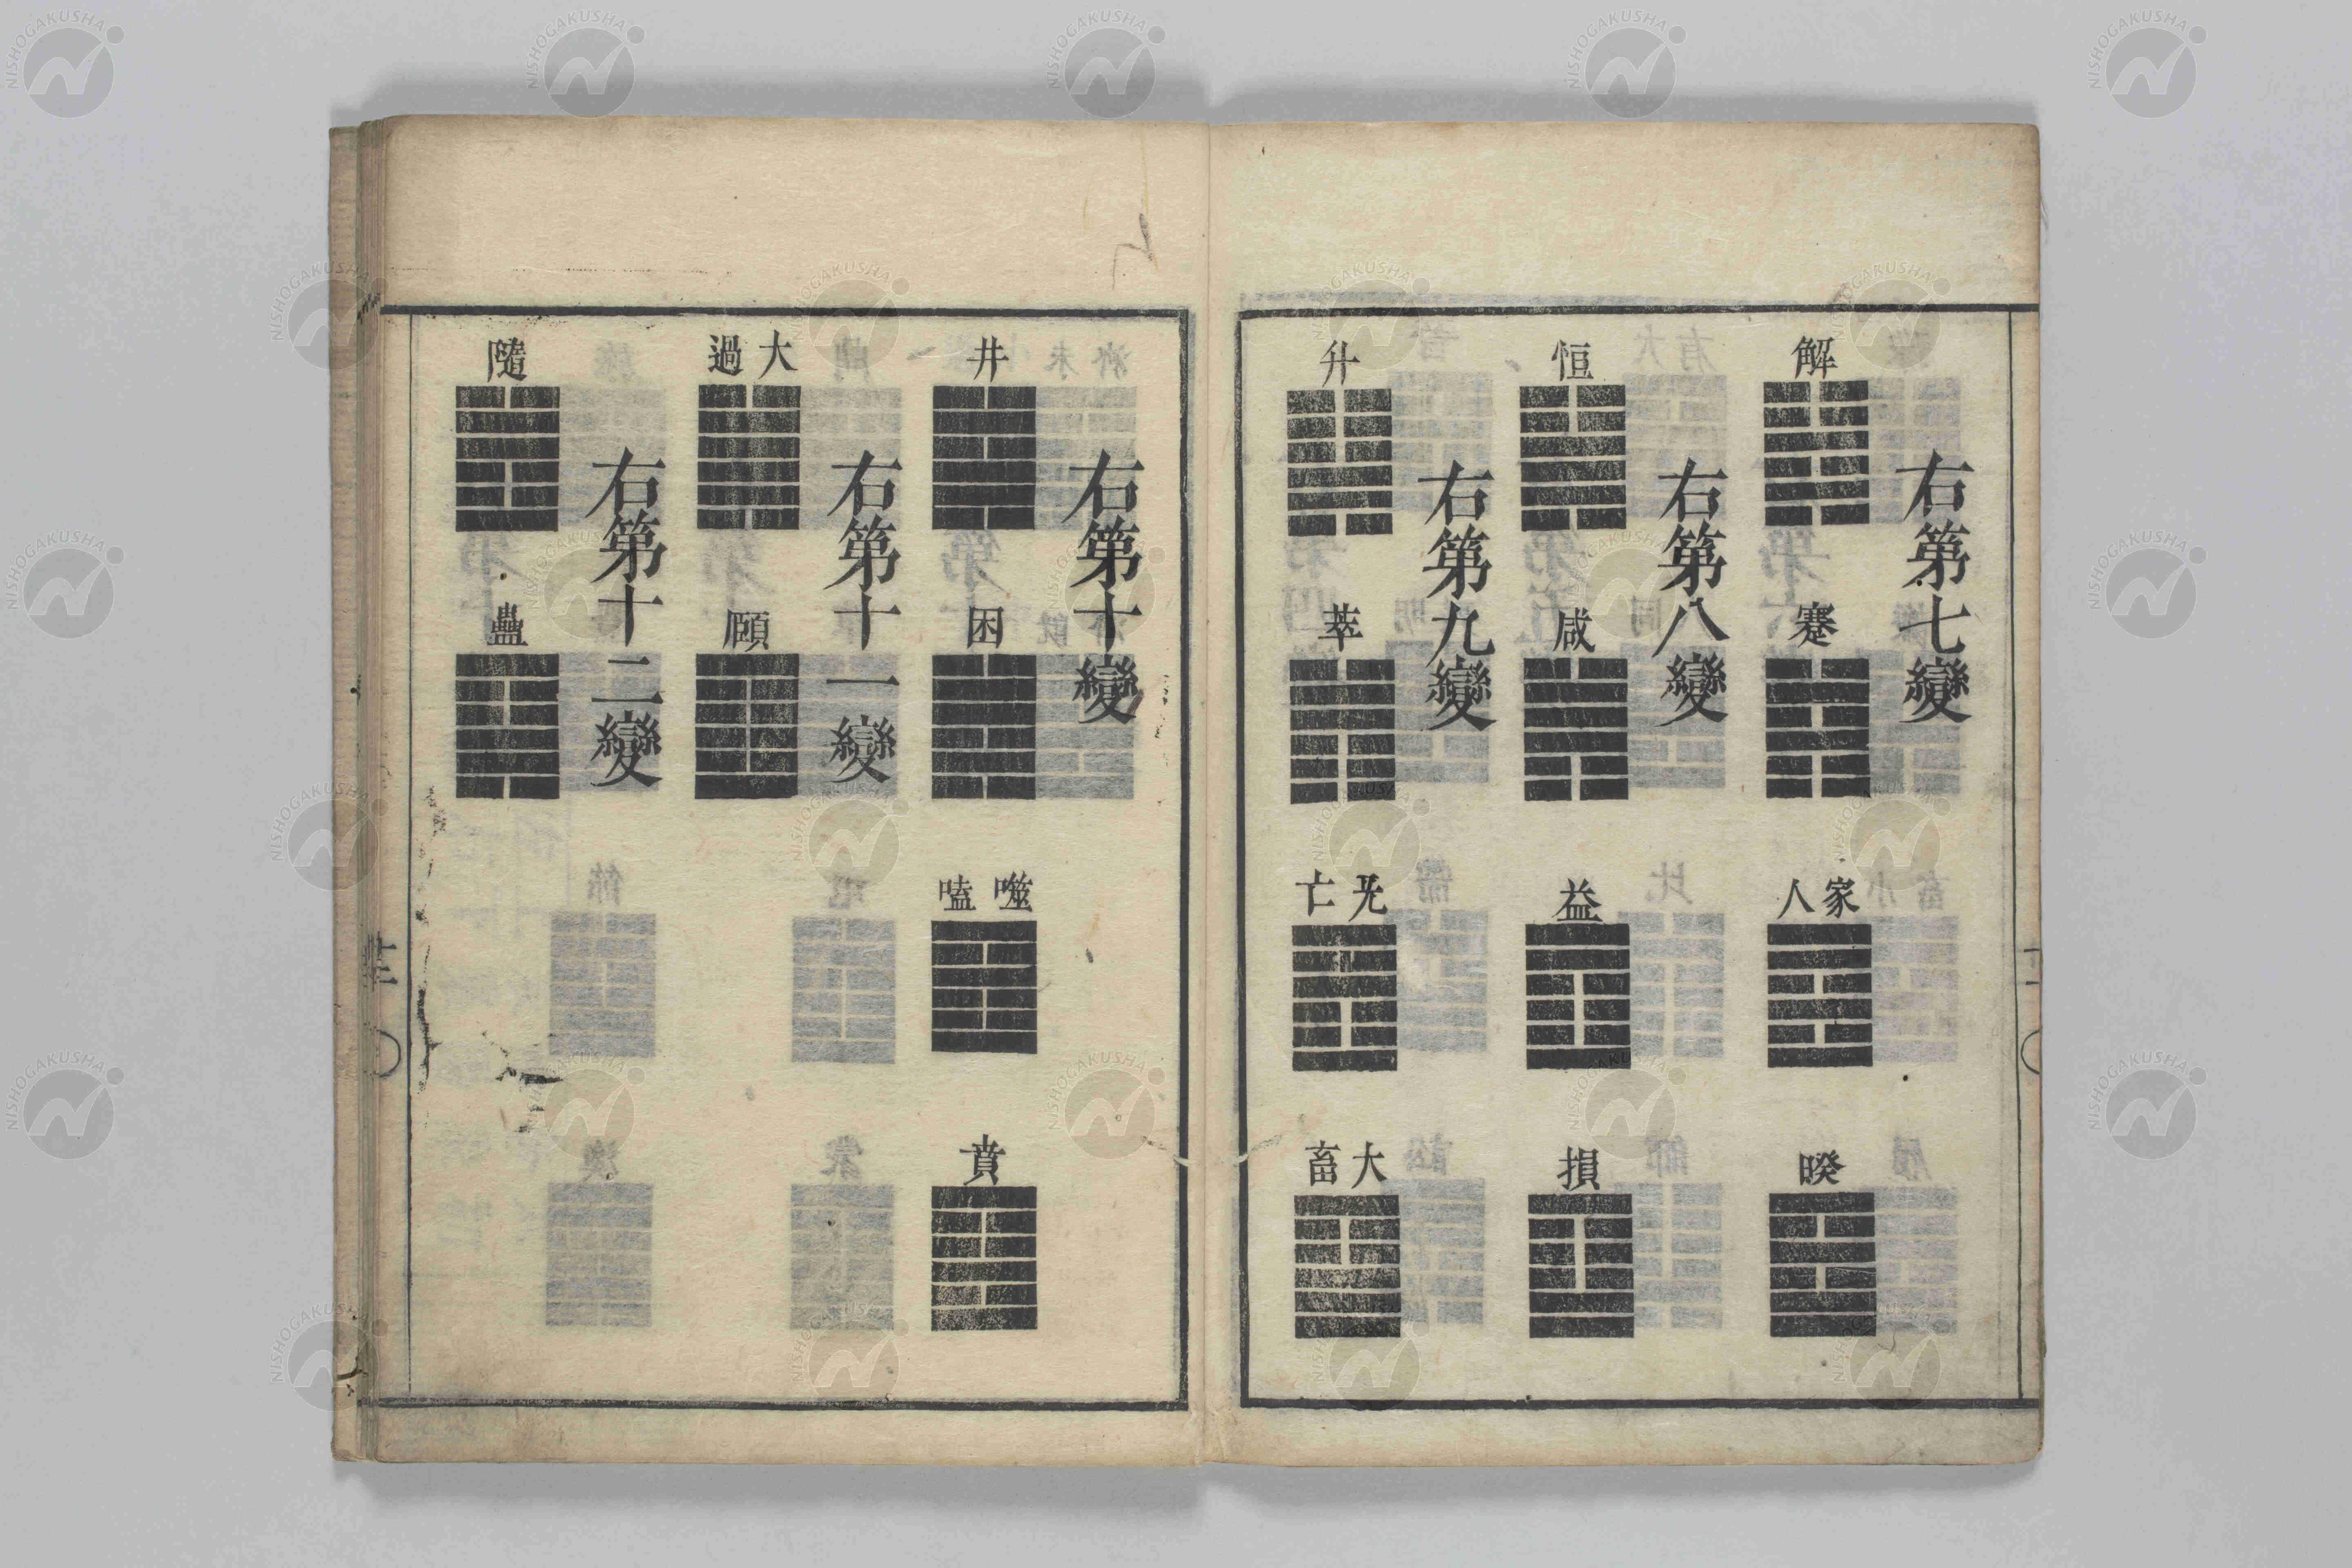 右第七變
解
蹇
家人
睽
右第八變
恒
咸
益
損
右第九變
升
萃
无亡
大畜
右第十變
井
困
噬嗑
賁
右第十一變
大過
頤
右第十二變
隨
蠱
NISHOGAKUSHA